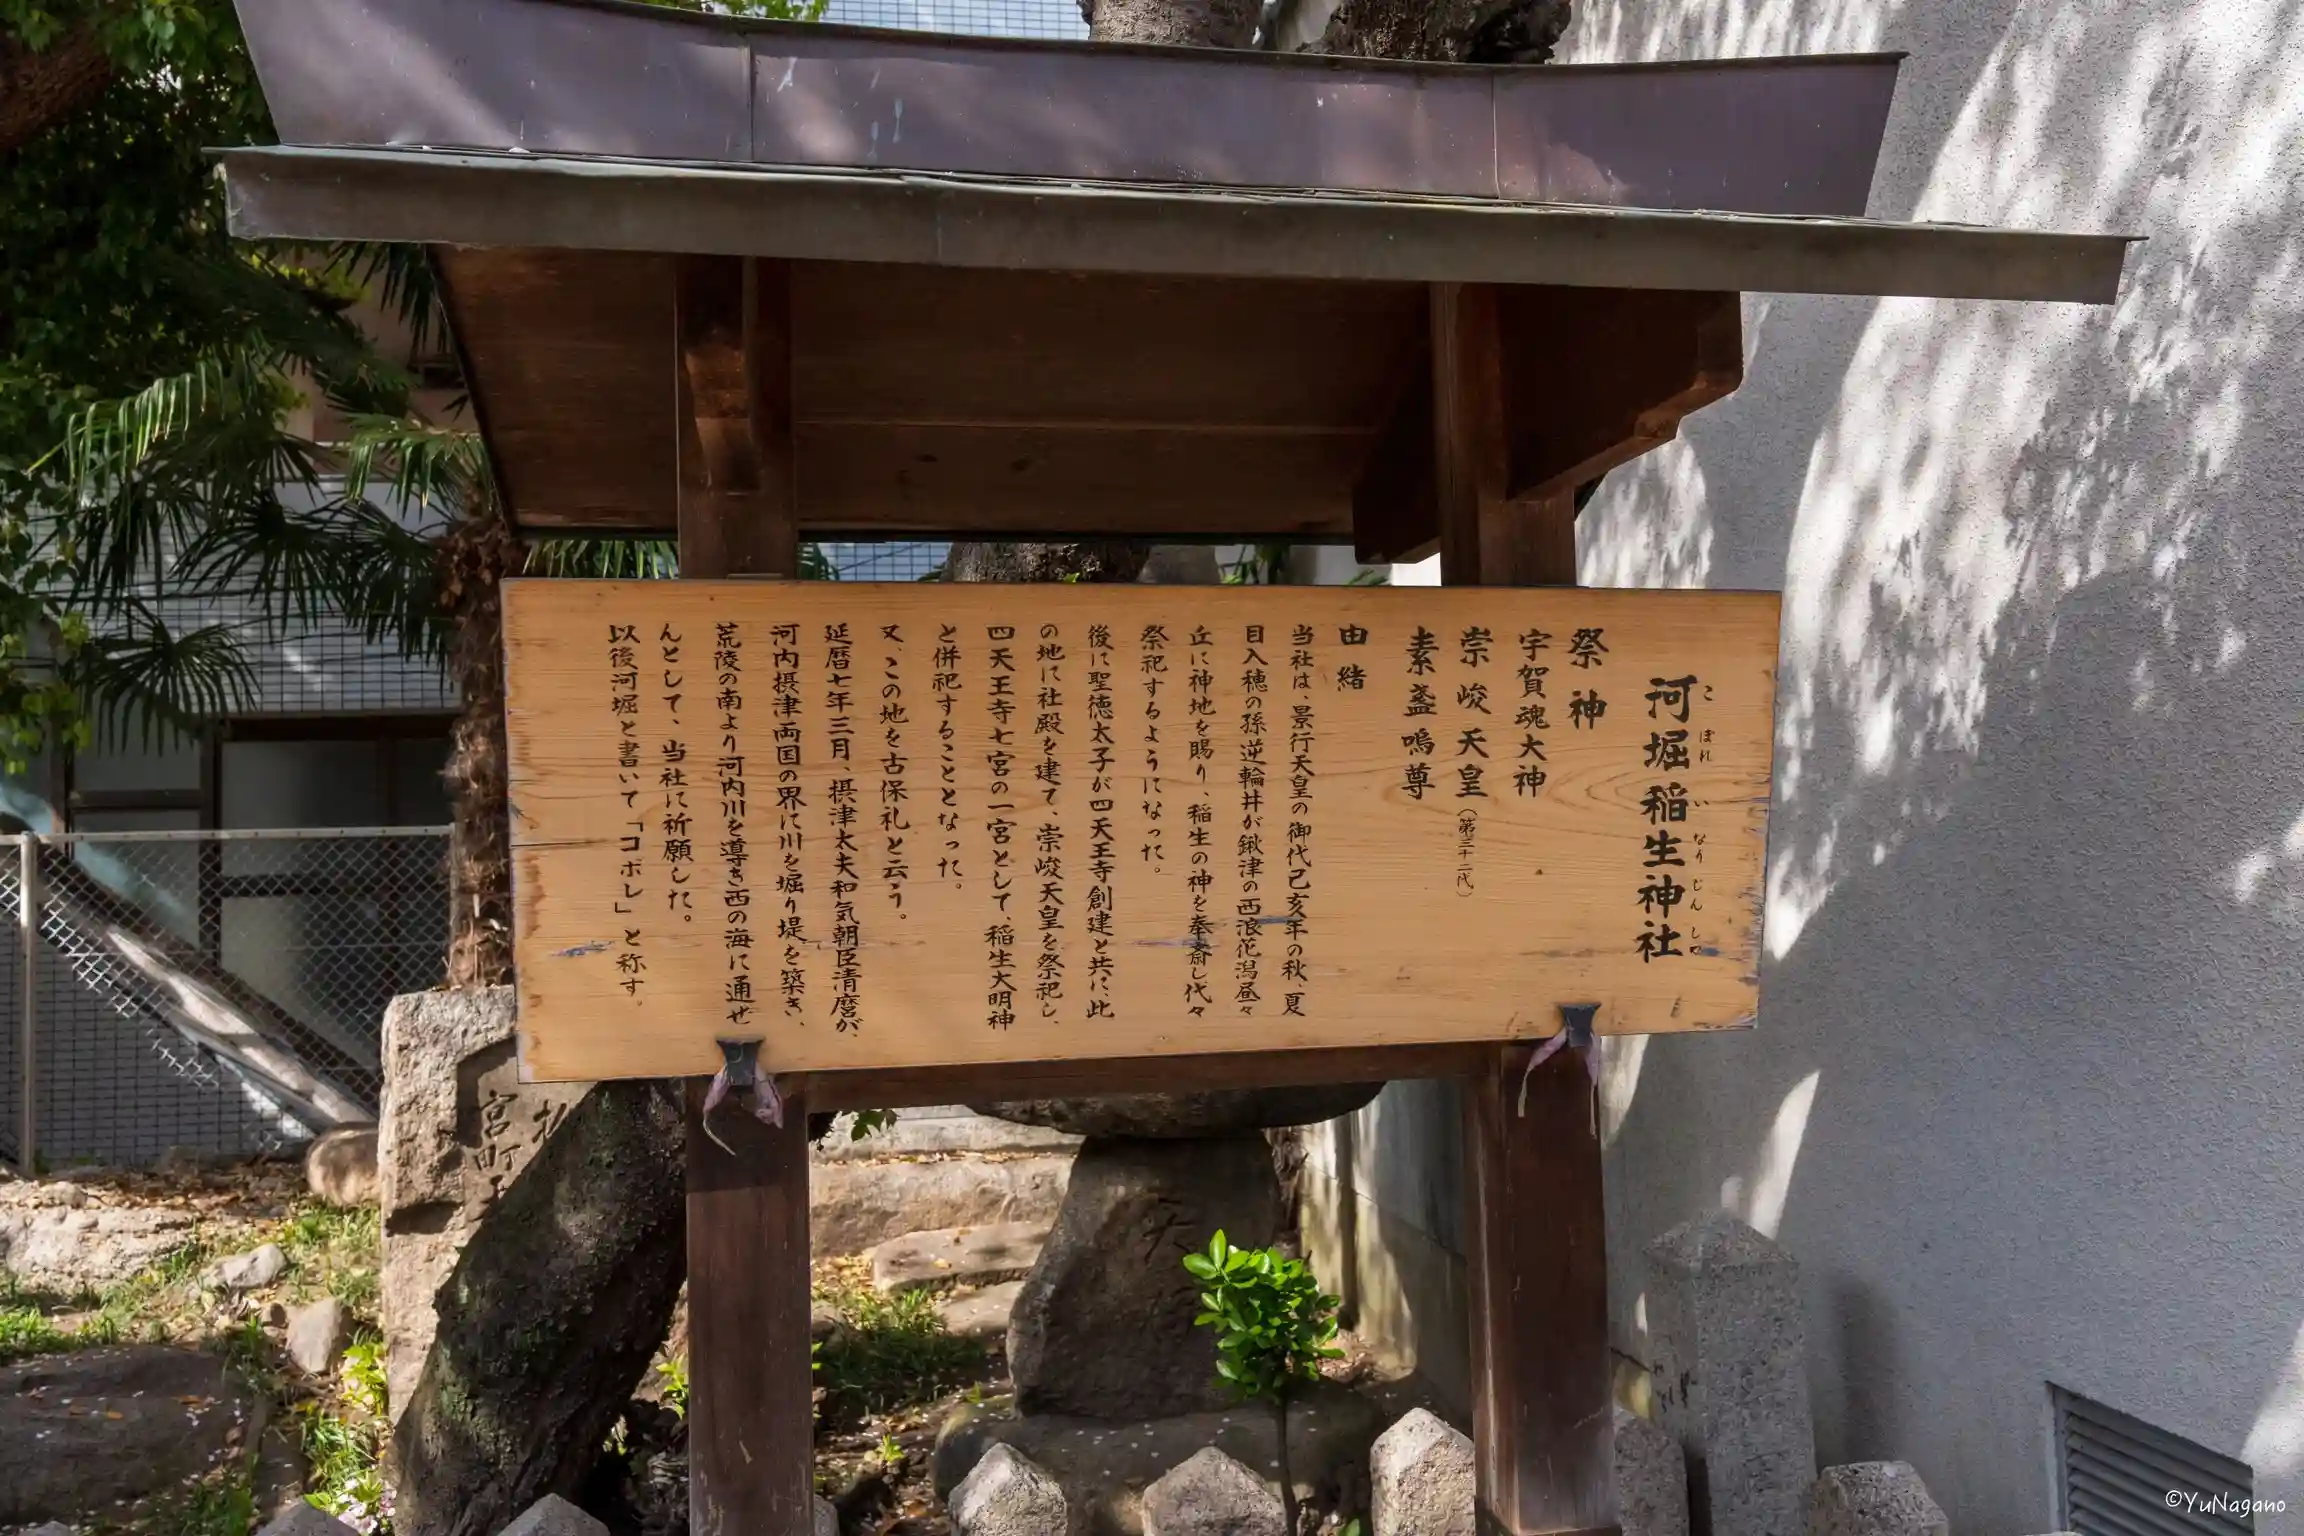 河堀稲生神社
こ ぼれ い なり じん しゃ
祭神
宇賀魂大神
崇峻天皇（第三十二代）
素盞嗚尊
由緒
当社は、景行天皇の御代己亥年の秋、夏
目入穂の孫逆輪井が鍬津の西浪花潟昼々
丘に神地を賜り、稲生の神を奉斎し代々
祭祀するようになった。
後に聖徳太子が四天王寺創建と共に、此
の地に社殿を建て、崇峻天皇を祭祀し、
四天王寺七宮の一宮として、稲生大明神
と併祀することとなった。
又、この地を古保礼と云う。
延暦七年三月、摂津太夫和気朝臣清麿が、
河内摂津両国の界に川を堀り堤を築き、
荒陵の南より河内川を導き西の海に通せ
んとして、当社に祈願した。
以後河堀と書いて「コボレ」と称す。
宮町
天
©YuNagano